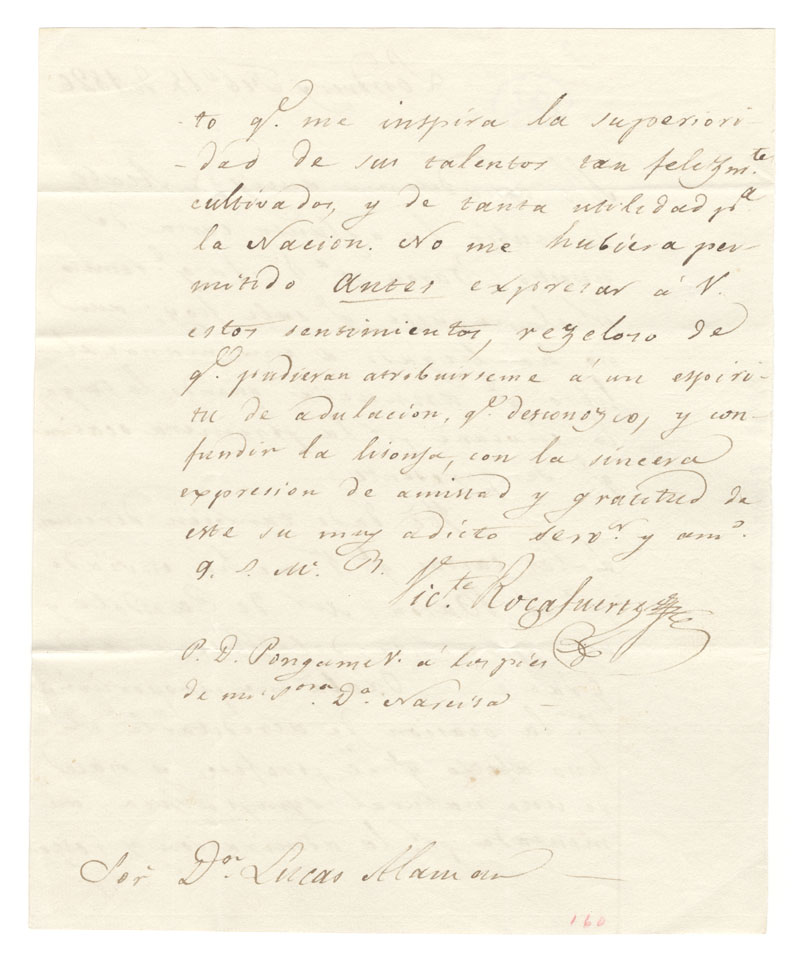 -to q.e me inspira la superiori-
-dad de sus talentos tan felizm.te
cultivados, y de tanta utilidad p.a
la Nacion. No me hubiera per-
mitido Antes expresar á V.
estos sentimientos, rezeloso de
q.e pudieran atribuirseme á un espiri-
tu de adulacion, q.e desconozco, y con-
fundir la lisonja, con la sincera
expresion de amistad y gratitud de
este su muy adicto serv.r y am.o
q. s. M. B.
Vic.te Rocafuerte
P. D. Pongame V. á los pies
de mi S.ora D.a Narcisa —
Sor D.n Lucas Alaman —
160